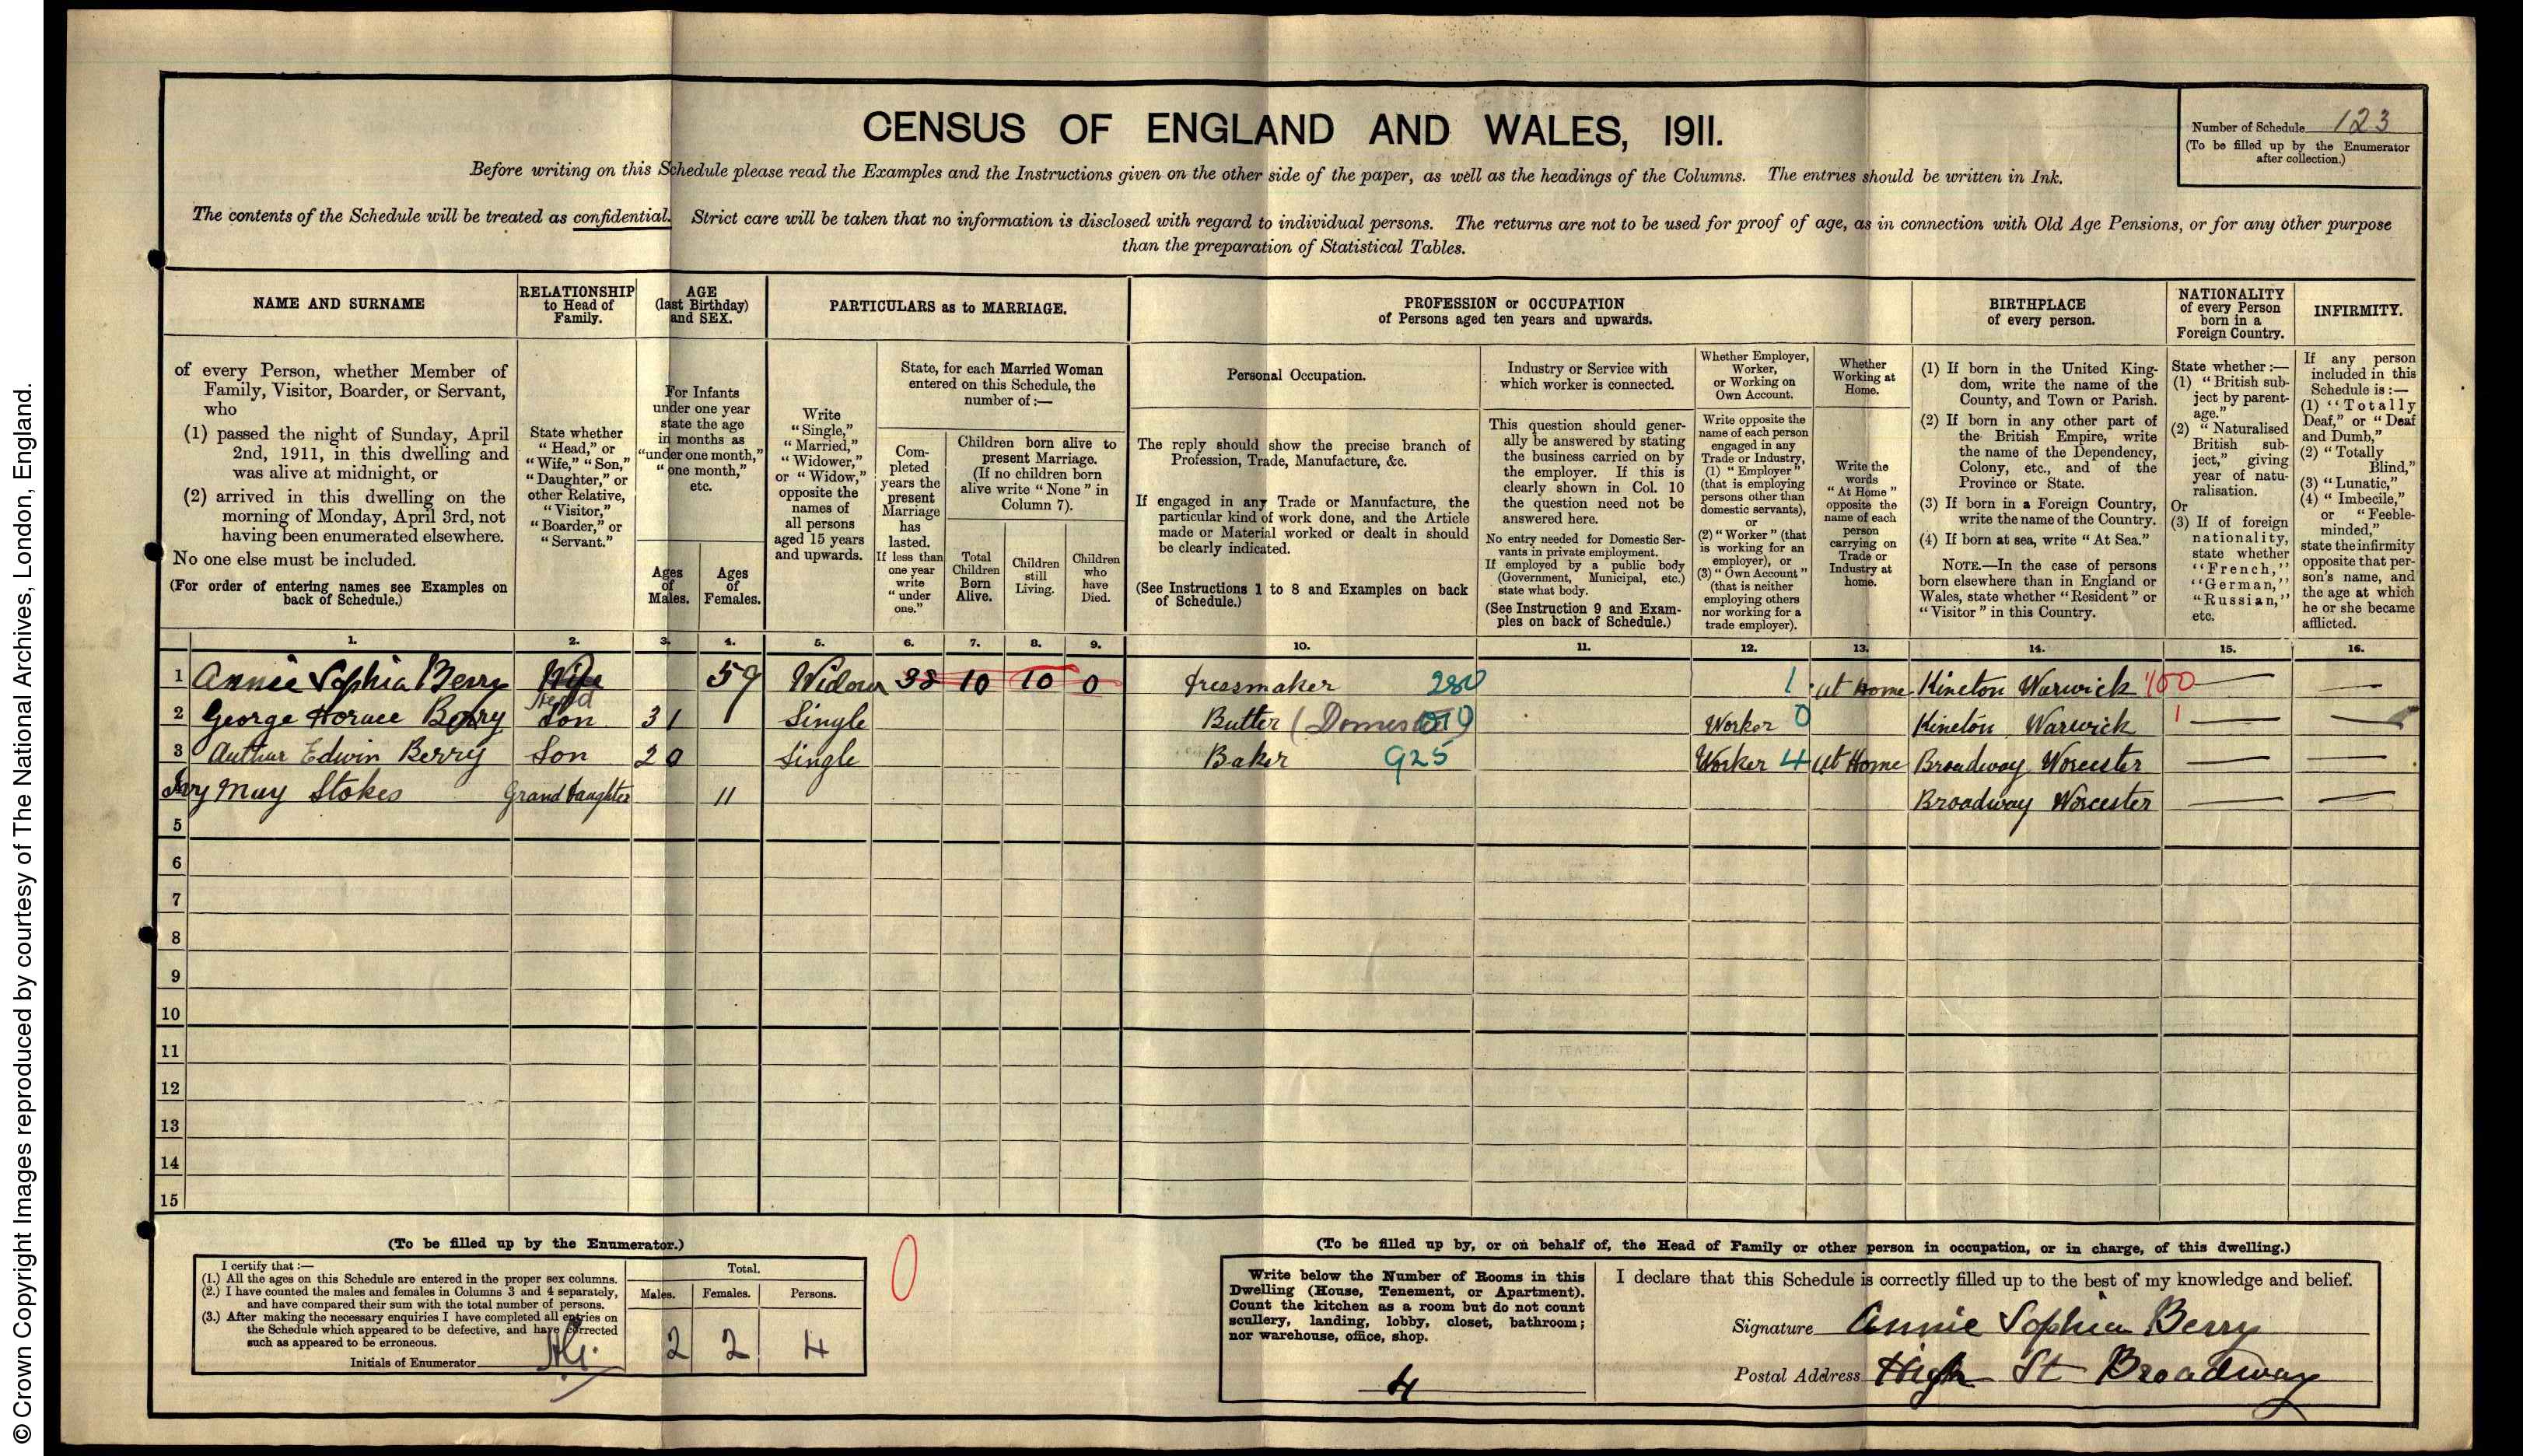 © Crown Copyright Images reproduced by courtesy of The National Archives, London, England.
CENSUS OF ENGLAND AND WALES, 1911.
Number of Schedule 123
(To be filled up by the Enumerator
after collection.)
Before writing on this Schedule please read the Examples and the Instructions given on the other side of the paper, as well as the headings of the Columns. The entries should be written in Ink.
The contents of the Schedule will be treated as confidential. Strict care will be taken that no information is disclosed with regard to individual persons. The returns are not to be used for proof of age, as in connection with Old Age Pensions, or for any other purpose
than the preparation of Statistical Tables.
NAME AND SURNAME
of every Person, whether Member of
Family, Visitor, Boarder, or Servant,
who
(1) passed the night of Sunday, April
2nd, 1911, in this dwelling and
was alive at midnight, or
(2) arrived in this dwelling on the
morning of Monday, April 3rd, not
having been enumerated elsewhere.
No one else must be included.
(For order of entering names see Examples on
back of Schedule.)
RELATIONSHIP
to Head of
Family.
State whether
"Head," or
"Wife," "Son,"
"Daughter," or
other Relative,
"Visitor,"
"Boarder," or
"Servant."
AGE
(last Birthday)
and SEX.
For Infants
under one year
state the age
in months as
"under one month,"
"one month,"
etc.
Ages
of
Males.
Ages
of
Females.
PARTICULARS as to MARRIAGE.
Write
"Single,"
"Married,"
"Widower,"
or "Widow,"
opposite the
names of
all persons
aged 15 years
and upwards.
State, for each Married Woman
entered on this Schedule, the
number of:—
Com-
pleted
years the
present
Marriage
has
lasted.
If less than
one year
write
"under
one."
Children born alive to
present Marriage.
(If no children born
alive write "None" in
Column 7).
Total
Children
Born
Alive.
Children
still
Living.
Children
who
have
Died.
PROFESSION or OCCUPATION
of Persons aged ten years and upwards.
Personal Occupation.
The reply should show the precise branch of
Profession, Trade, Manufacture, &c.
If engaged in any Trade or Manufacture, the
particular kind of work done, and the Article
made or Material worked or dealt in should
be clearly indicated.
(See Instructions 1 to 8 and Examples on back
of Schedule.)
Industry or Service with
which worker is connected.
This question should gener-
ally be answered by stating
the business carried on by
the employer. If this is
clearly shown in Col. 10
the question need not be
answered here.
No entry needed for Domestic Ser-
vants in private employment.
If employed by a public body
(Government, Municipal, etc.)
state what body.
(See Instruction 9 and Exam-
ples on back of Schedule.)
Whether Employer,
Worker,
or Working on
Own Account.
Write opposite the
name of each person
engaged in any
Trade or Industry,
(1) "Employer"
(that is employing
persons other than
domestic servants),
or
(2) "Worker" (that
is working for an
employer), or
(3) "Own Account"
(that is neither
employing others
nor working for a
trade employer).
Whether
Working at
Home.
Write the
words
"At Home"
opposite the
name of each
person
carrying on
Trade or
Industry at
home.
BIRTHPLACE
of every person.
(1) If born in the United King-
dom, write the name of the
County, and Town or Parish.
(2) If born in any other part of
the British Empire, write
the name of the Dependency,
Colony, etc., and of the
Province or State.
(3) If born in a Foreign Country,
write the name of the Country.
(4) If born at sea, write "At Sea."
NOTE.—In the case of persons
born elsewhere than in England or
Wales, state whether "Resident" or
"Visitor" in this Country.
NATIONALITY
of every Person
born in a
Foreign Country.
State whether:—
(1) "British sub-
ject by parent-
age."
(2) "Naturalised
British sub-
ject," giving
year of natu-
ralisation.
Or
(3) If of foreign
nationality,
state whether
"French,"
"German,"
"Russian,"
etc.
INFIRMITY.
If any person
included in this
Schedule is:—
(1) "Totally
Deaf," or "Deaf
and Dumb,"
(2) "Totally
Blind,"
(3) "Lunatic,"
(4) "Imbecile,"
or "Feeble-
minded,"
state the infirmity
opposite that per-
son's name, and
the age at which
he or she became
afflicted.
1. 2. 3. 4. 5. 6. 7. 8. 9. 10. 11. 12. 13. 14. 15. 16.
1 Annie Sophia Berry Wife Head 59 Widow 38 10 10 0 dressmaker 280 1 at Home Kineton Warwick 100 —
2 George Horace Berry Son 31 Single Butter (Domestic) Worker 0 Kineton Warwick 1 —
3 Authur Edwin Berry Son 20 Single Baker 925 Worker 4 at Home Broadway Worcester — —
Ivy May Stokes Grand Daughter 11 Broadway Worcester — —
5
6
7
8
9
10
11
12
13
14
15
(To be filled up by the Enumerator.)
I certify that:—
(1.) All the ages on this Schedule are entered in the proper sex columns.
(2.) I have counted the males and females in Columns 3 and 4 separately,
and have compared their sum with the total number of persons.
(3.) After making the necessary enquiries I have completed all entries on
the Schedule which appeared to be defective, and have corrected
such as appeared to be erroneous.
Initials of Enumerator
Total.
Males. Females. Persons.
2 2 4
0
(To be filled up by, or on behalf of, the Head of Family or other person in occupation, or in charge, of this dwelling.)
Write below the Number of Rooms in this
Dwelling (House, Tenement, or Apartment).
Count the kitchen as a room but do not count
scullery, landing, lobby, closet, bathroom;
nor warehouse, office, shop.
4
I declare that this Schedule is correctly filled up to the best of my knowledge and belief.
Signature Annie Sophia Berry
Postal Address High St Broadway